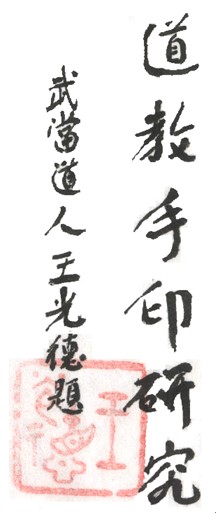 道教手印研究
武當道人王光德題